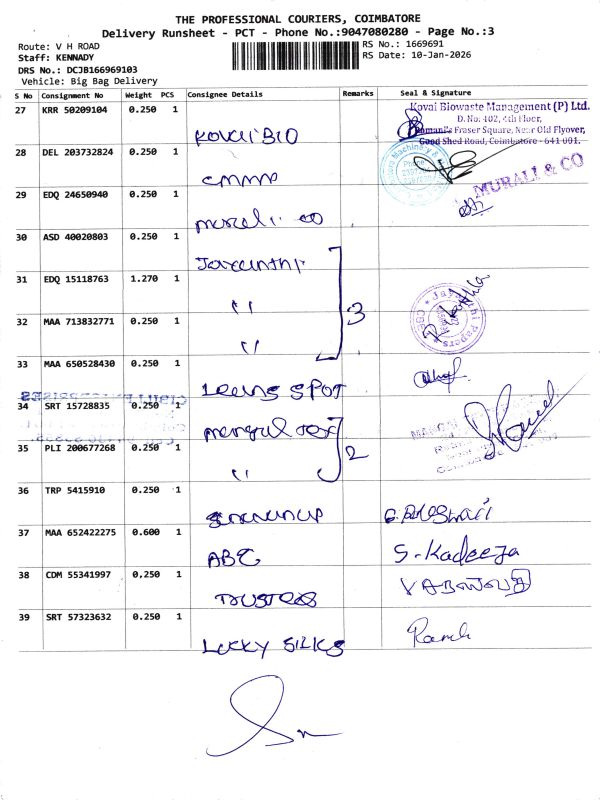 THE PROFESSIONAL COURIERS, COIMBATORE
Delivery Runsheet - PCT - Phone No.:9047080280 - Page No.:3
Route: V H ROAD
RS No.: 1669691
Staff: KENNADY
RS Date: 10-Jan-2026
DRS No.: DCJB166969103
Vehicle: Big Bag Delivery
S No Consignment No Weight PCS Consignee Details Remarks Seal & Signature
27 KRR 50209104 0.250 1 KOVAI BIO
Kovai Biowaste Management (P) Ltd.
D. No: 402, 4th Floor,
Ramani's Fraser Square, Near Old Flyover,
Good Shed Road, Coimbatore - 641 001.
28 DEL 203732824 0.250 1 cmmp
29 EDQ 24650940 0.250 1
MURALI & CO
30 ASD 40020803 0.250 1 Jayanthi
31 EDQ 15118763 1.270 1 "
3
32 MAA 713832771 0.250 1 "
33 MAA 650528430 0.250 1 SPOT
34 SRT 15728835 0.250 1
35 PLI 200677268 0.250 1 "
2
36 TRP 5415910 0.250 1
37 MAA 652422275 0.600 1 ABC S-Kadeeja
38 CDM 55341997 0,250 1
39 SRT 57323632 0.250 1 LUCKY SILKS